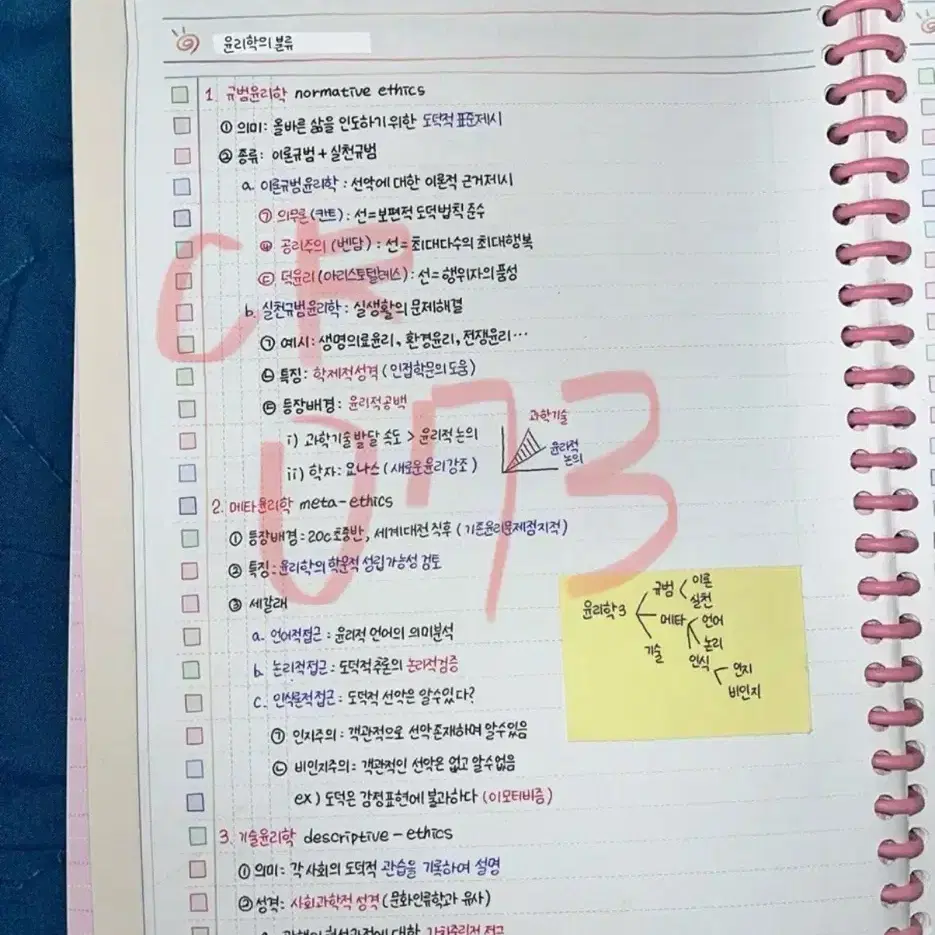 윤리학의 분류
1. 규범윤리학 normative ethics
① 의미: 올바른 삶을 인도하기 위한 도덕적 표준제시
② 종류: 이론규범 + 실천규범
a. 이론규범윤리학 : 선악에 대한 이론적 근거제시
㉠ 의무론(칸트) : 선=보편적 도덕법칙 준수
㉡ 공리주의(벤담) : 선=최대다수의 최대행복
㉢ 덕윤리(아리스토텔레스) : 선=행위자의 품성
b. 실천규범윤리학 : 실생활의 문제해결
㉠ 예시: 생명의료윤리, 환경윤리, 전쟁윤리…
㉡ 특징: 학제적성격(인접학문의 도움)
㉢ 등장배경: 윤리적공백
i) 과학기술발달 속도 > 윤리적 논의
ii) 학자: 요나스(새로운윤리강조)
과학기술
윤리적
논의
2. 메타윤리학 meta-ethics
① 등장배경: 20c초중반, 세계대전 직후 (기존윤리문제점지적)
② 특징: 윤리학의 학문적 성립가능성 검토
③ 세갈래
a. 언어적접근 : 윤리적 언어의 의미분석
b. 논리적접근 : 도덕적추론의 논리적검증
c. 인식론적접근 : 도덕적 선악은 알수있다?
㉠ 인지주의 : 객관적으로 선악존재하며 알수있음
㉡ 비인지주의: 객관적인 선악은 없고 알수없음
ex) 도덕은 감정표현에 불과하다 (이모티비즘)
윤리학3
규범 이론
실천
메타 언어
논리
인식 인지
비인지
기술
3. 기술윤리학 descriptive-ethics
① 의미: 각 사회의 도덕적 관습을 기록하여 설명
② 성격: 사회과학적 성격(문화인류학과 유사)
CF
073